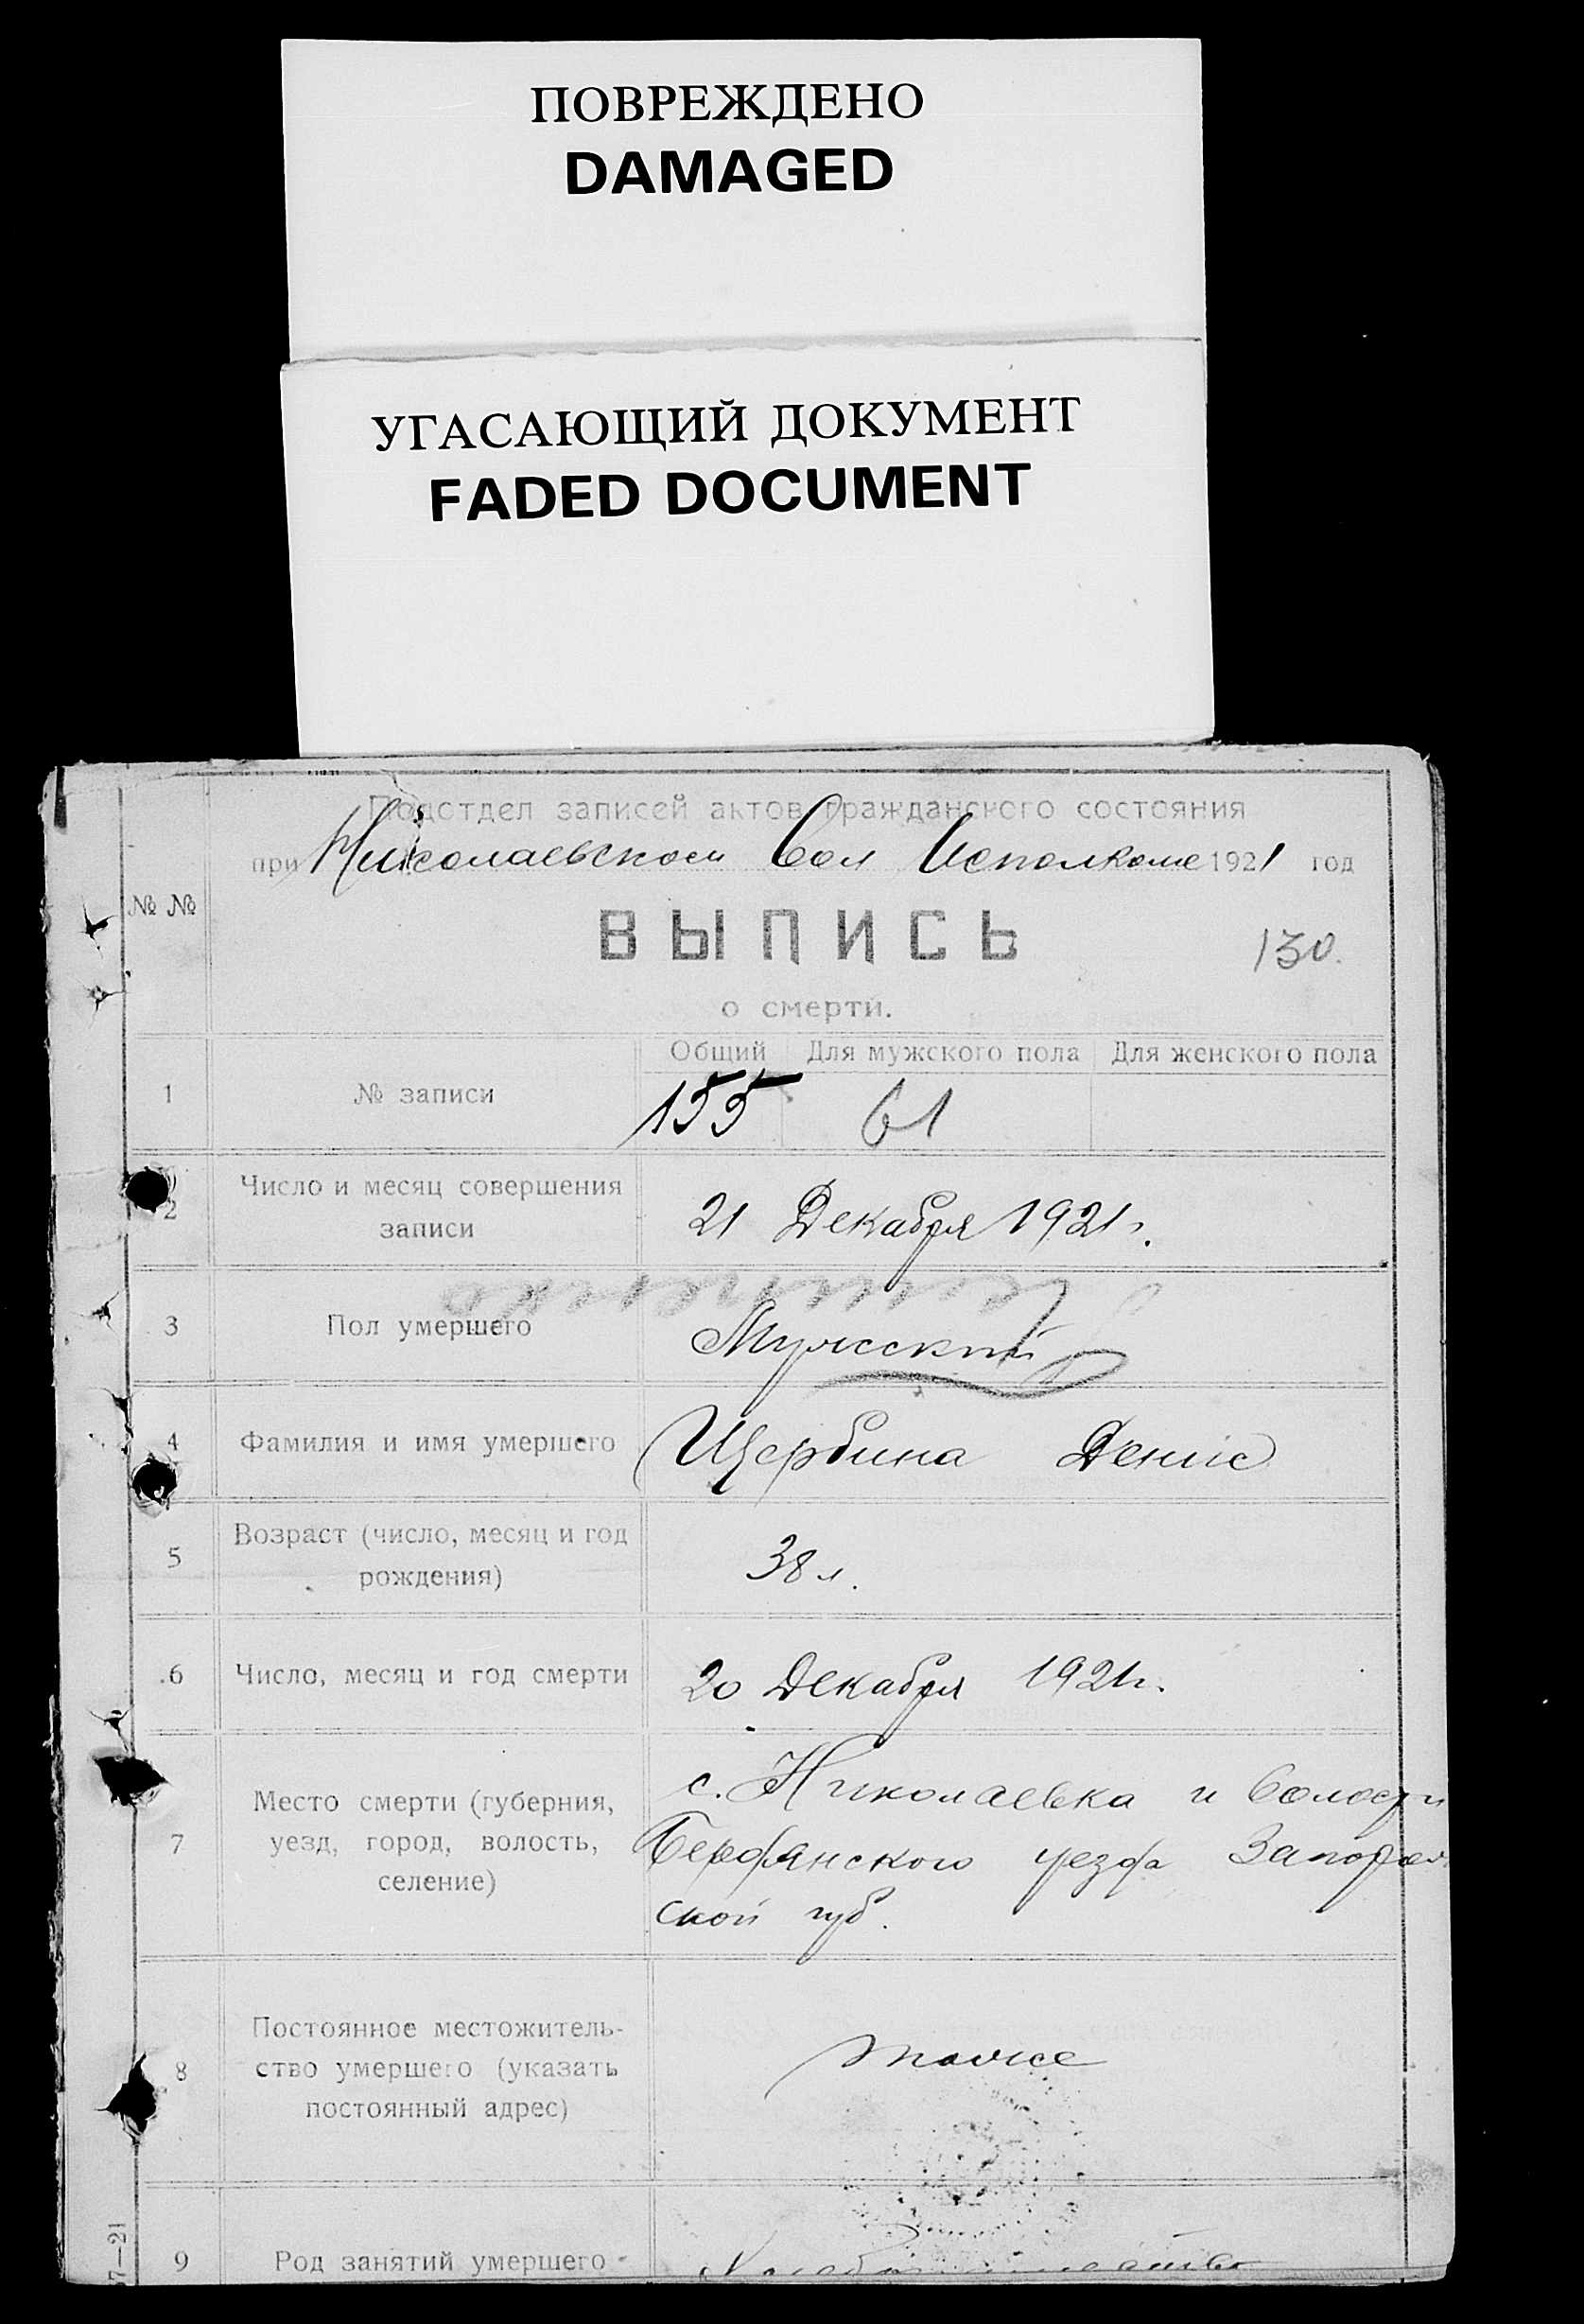 ПОВРЕЖДЕНО
DAMAGED
УГАСАЮЩИЙ ДОКУМЕНТ
FADED DOCUMENT
Подотдел записей актов гражданского состояния
при Николаевском Вол Исполкоме 1921 год
№ №
ВЫПИСЬ
130.
о смерти.
Общий Для мужского пола Для женского пола
1 № записи 155 61
2 Число и месяц совершения
записи
21 Декабря 1921 г.
3 Пол умершего Мужский
4 Фамилия и имя умершего Щербина Денис
5 Возраст (число, месяц и год
рождения)
38 л.
6 Число, месяц и год смерти 20 Декабря 1921 г.
7 Место смерти (губерния,
уезд, город, волость,
селение)
с. Николаевка и волости
Бердянского уезда Запорож
ской губ.
8 Постоянное местожитель-
ство умершего (указать
постоянный адрес)
тоже
9 Род занятий умершего
7—21